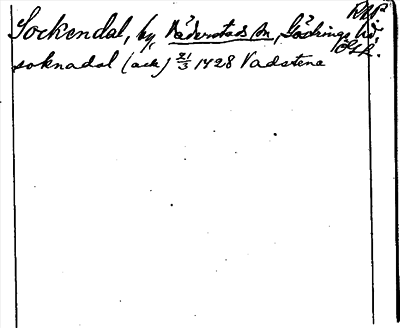 Sockendal, by, Väderstads sn, Göstrings hd
Östk.
soknadal (ack) 21/3 1428 Vadstena